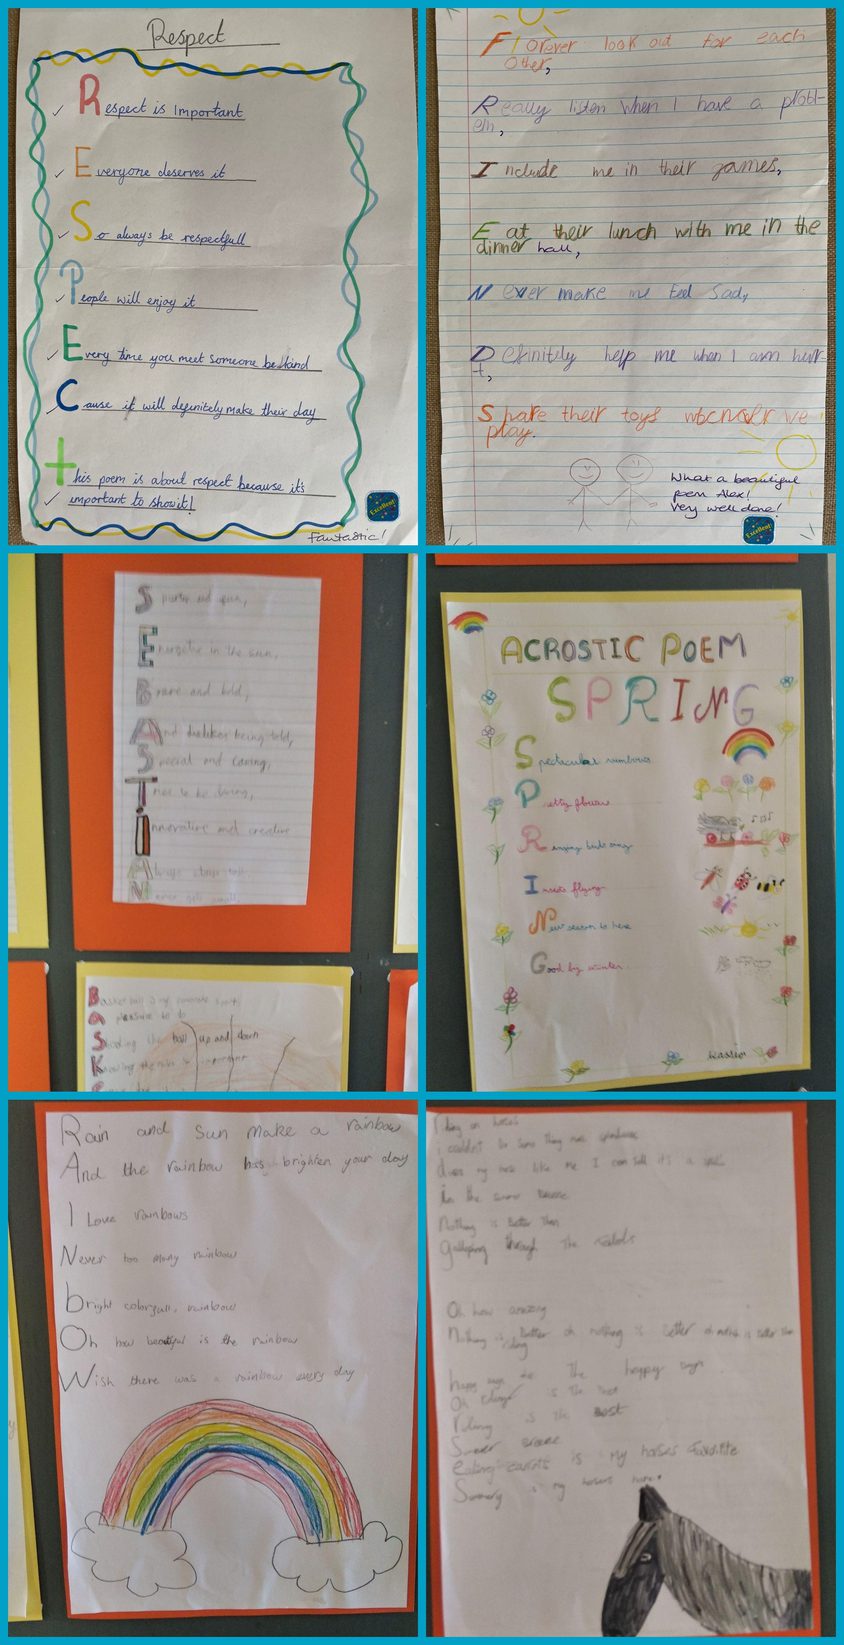 Respect
Respect is Important
Everyone deserves it
So always be respectfull
People will enjoy it
Every time you meet someone be kind
Cause it will definitely make their day
this poem is about respect because it's
important to show it!
Excellent
Fantastic!
Forever look out for each
other,
Really listen when I have a probl-
em,
Include me in their games,
Eat their lunch with me in the
dinner hall,
Never make me feel sad,
Definitely help me when I am hur-
t,
Share their toys whenever we
play.
What a beautiful
poem Alex!
Very well done!
Excellent
Energetic in the sun,
Brave and bold,
And dislikes being told,
Special and caring,
Innovative and creative
Always
Never
Basketball is my
pleasure to do
the ball up and down
Knowing the rules is important
ACROSTIC POEM
SPRING
Spectacular
Pretty flowers
birds
Insects flying
New season is here
Good by winter
Rain and sun make a rainbow
And the rainbow has brighten your day
I Love rainbows
Never too many rainbow
bright colorfull, rainbow
Oh how beautyful is the rainbow
Wish there was a rainbow every day
Riding on horses
I couldn't be
like me I can tell it's a
in the
Nothing is better than
galloping through the
Oh how amazing
Nothing is better oh nothing is better oh nothing is better than
riding
happy The happy
Oh is the best
riding is the best
Summer
eating carrots is my horses favourite
is my horses name.